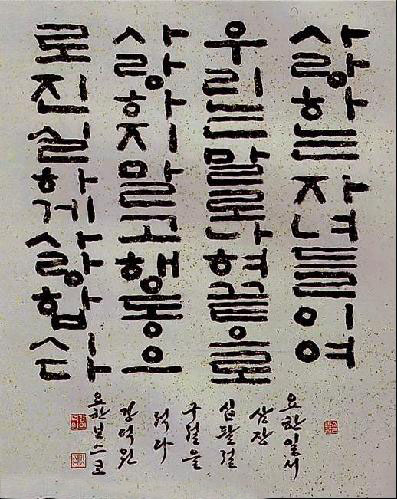 사랑하는 자녀들이여
우리는 말로나 혀끝으로
사랑하지 말고 행동으
로 진실하게 사랑합시다
요한일서
삼장
십팔절
구절을
적다
요한보스코